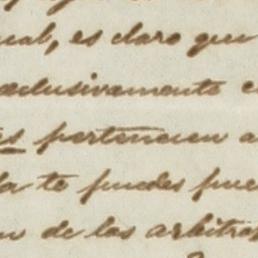 ual, es claro que
clusivamente e
es pertenecen a
la te puedes pue
n de las arbitra